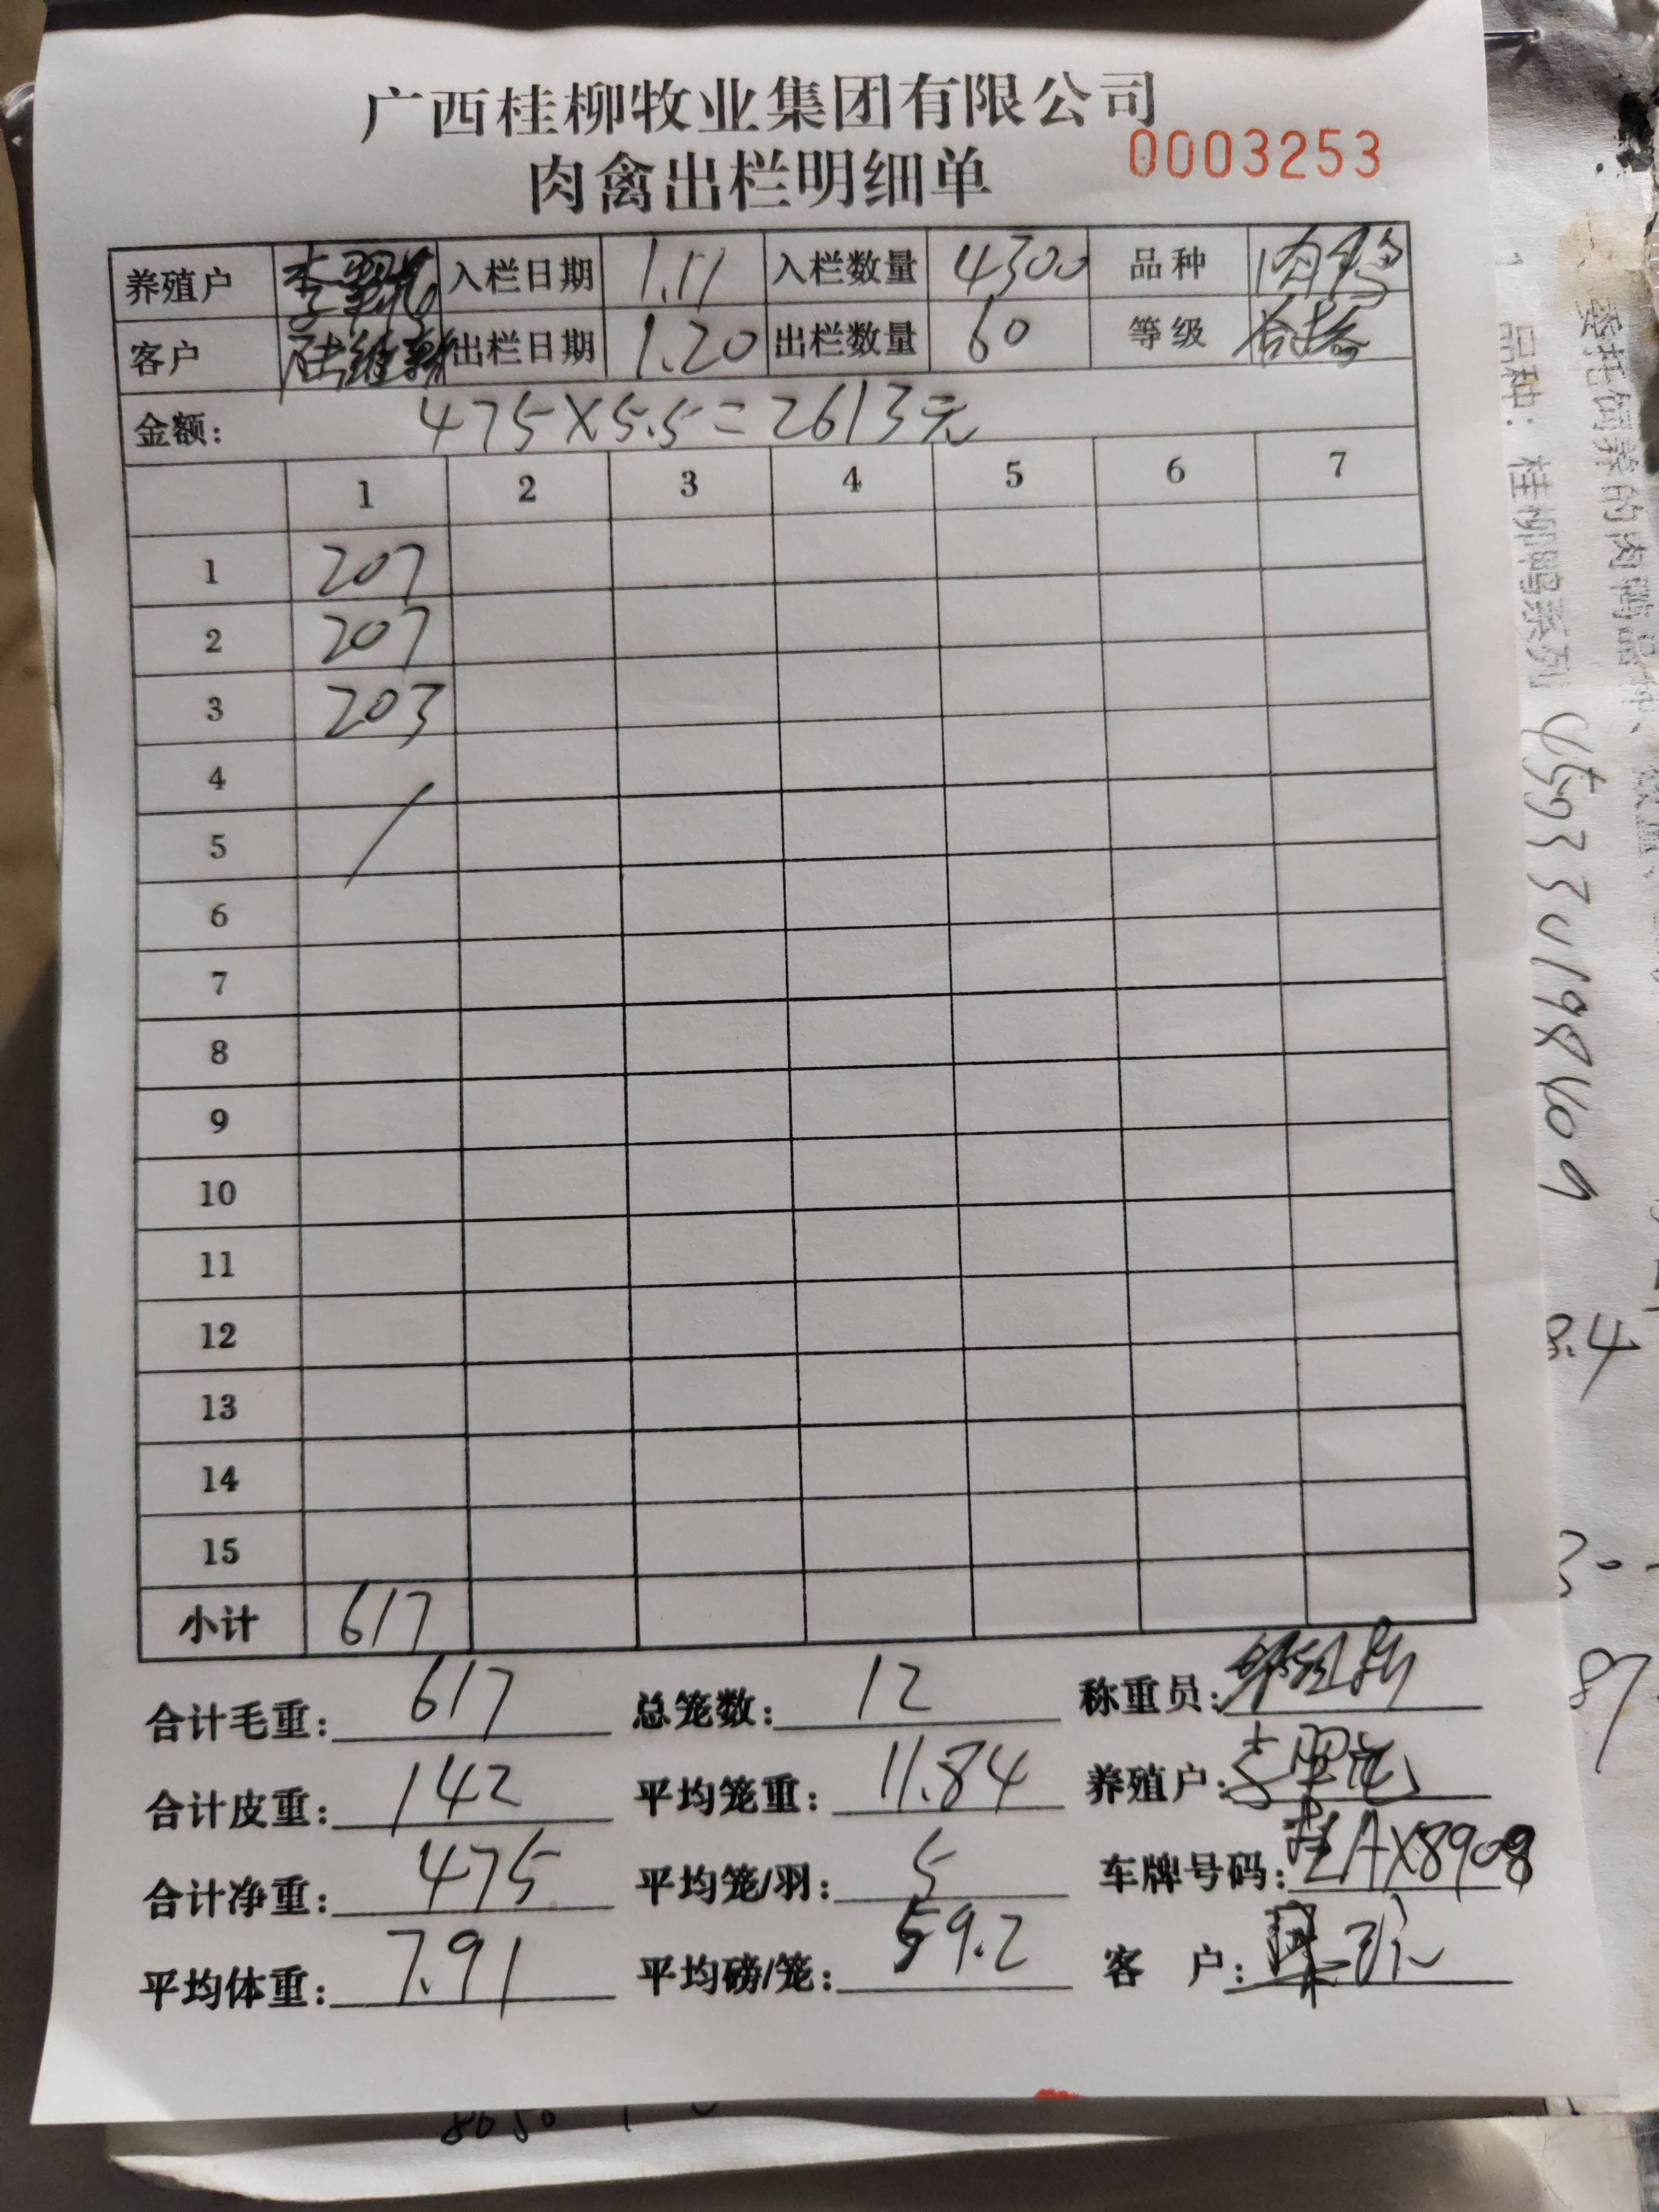 广西桂柳牧业集团有限公司
肉禽出栏明细单 0003253
养殖户 李 入栏日期 1.11 入栏数量 4300 品种 肉鸭
客户 陆维 出栏日期 1.20 出栏数量 60 等级 合格
金额: 475×5.5=2613元
1 2 3 4 5 6 7
1 207
2 207
3 203
4
5
6
7
8
9
10
11
12
13
14
15
小计 617
合计毛重: 617 总笼数: 12 称重员:
合计皮重: 142 平均笼重: 11.84 养殖户: 李
合计净重: 475 平均笼/羽: 5 车牌号码: 桂AX8908
平均体重: 7.91 平均磅/笼: 59.2 客 户:
委托饲养的肉鸭品种、
1 品种:桂柳鸭系列
8.4
87
8650